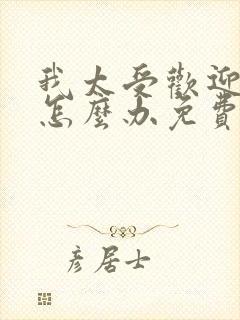 我太受歡迎
怎麼办免費
彦居士